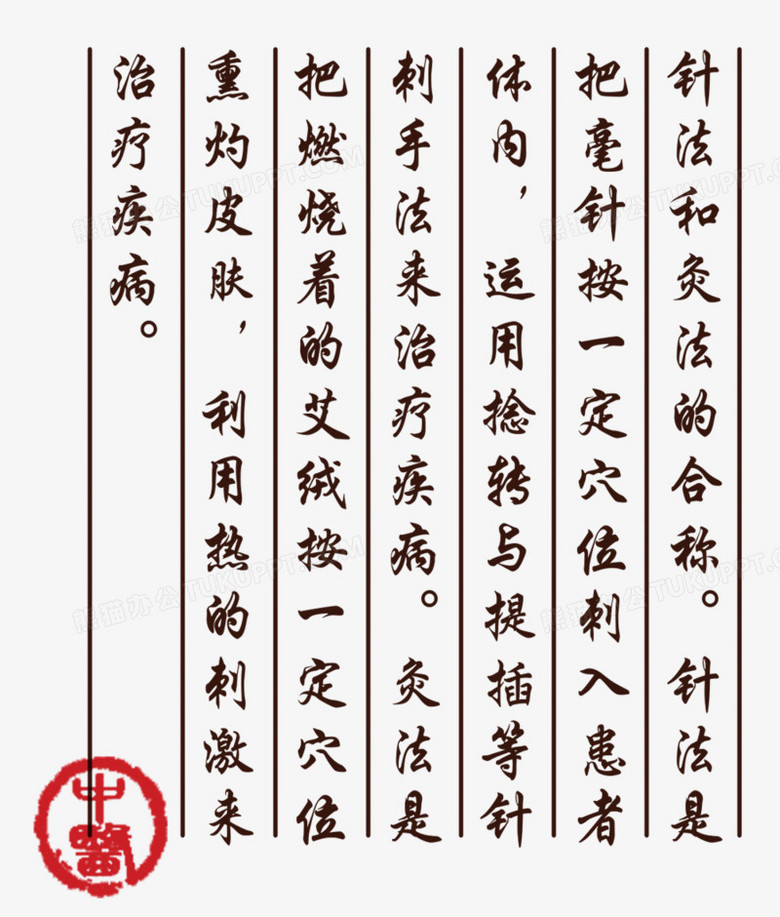 针法和灸法的合称。针法是
把毫针按一定穴位刺入患者
体内，运用捻转与提插等针
刺手法来治疗疾病。灸法是
把燃烧着的艾绒按一定穴位
熏灼皮肤，利用热的刺激来
治疗疾病。
中醫
熊猫办公 TUKUPPT.COM
熊猫办公 TUKUPPT.COM
熊猫办公 TUKUPPT.COM
熊猫办公 TUKUPPT.COM